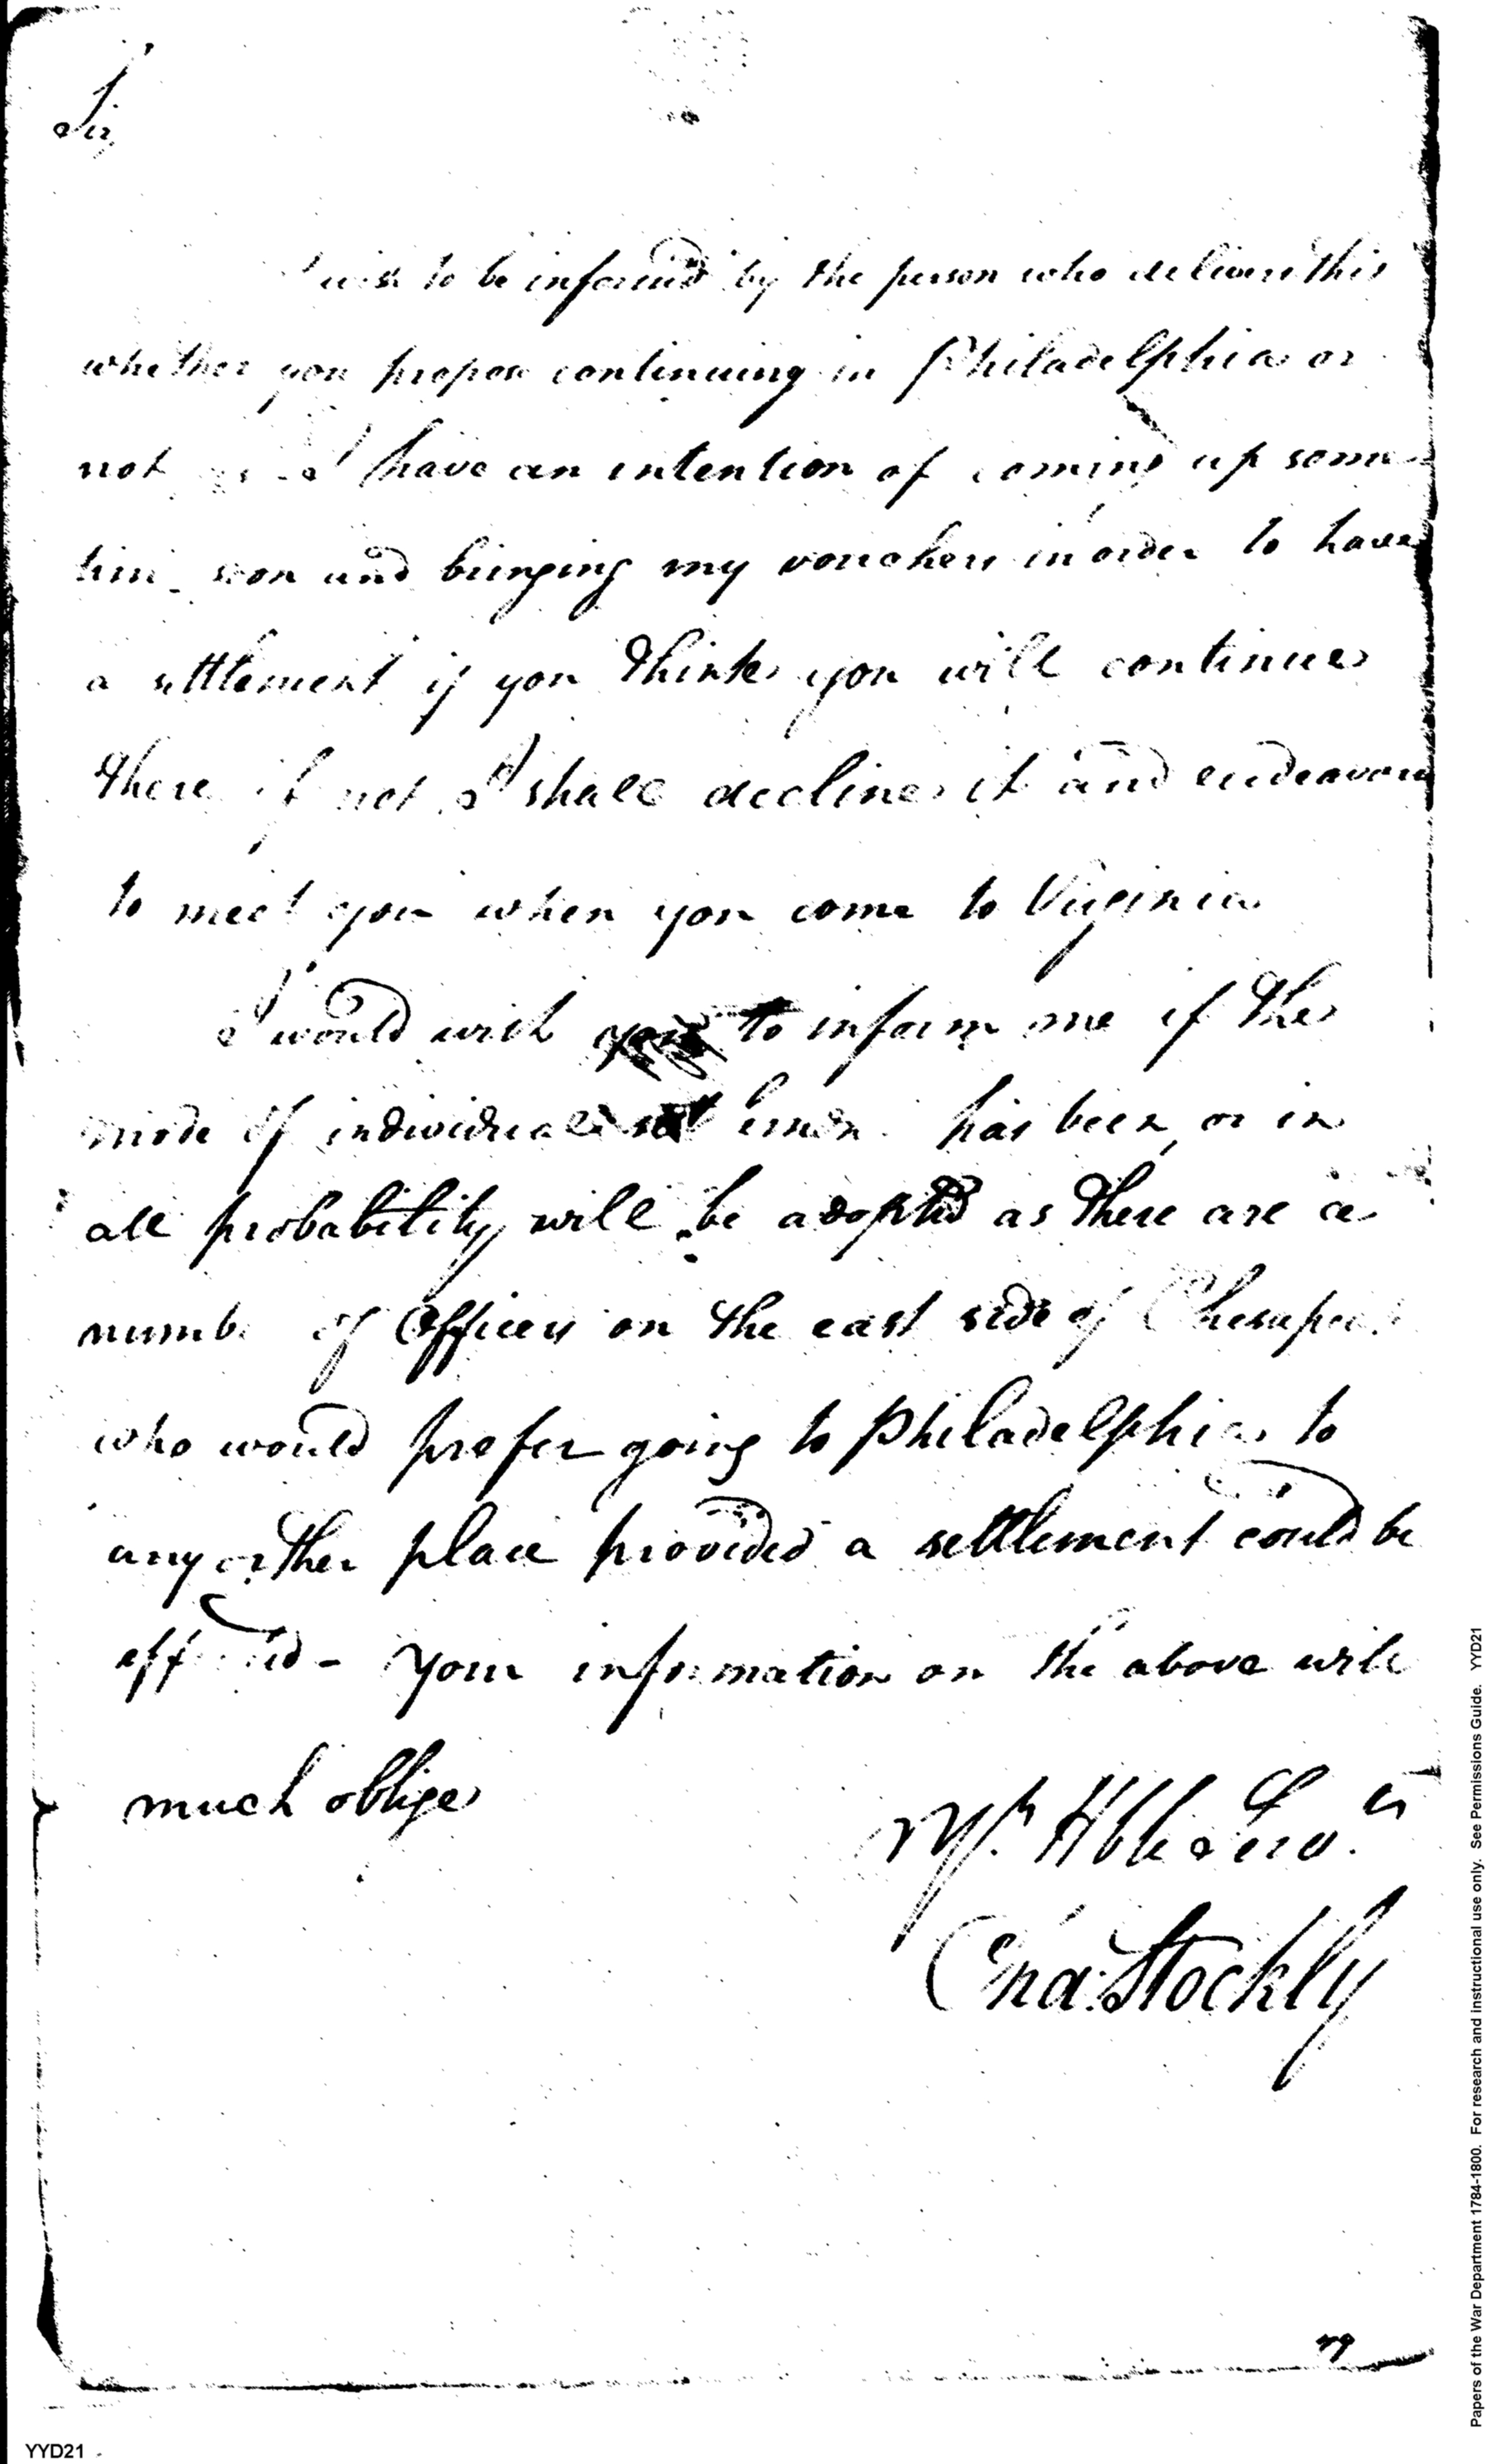 Sir,
I wish to be inform'd by the person who delivers this
whether you propose continuing in Philadelphia or
not as I have an intention of coming up some
time soon and bringing my vouchers in order to have
a settlement if you think you will continue
there if not I shall decline it and endeavour
to meet you when you come to Virginia
I would wish you to inform me if the
mode of individual has been or in
all probability will be adopted as there are a
number of Officers on the east side of Chesapeak
who would prefer going to Philadelphia to
any other place provided a settlement could be
effected - Your information on the above will
much oblige
Yr. Hble Serv.
Cha: Stockly
YYD21
Papers of the War Department 1784-1800. For research and instructional use only. See Permissions Guide. YYD21